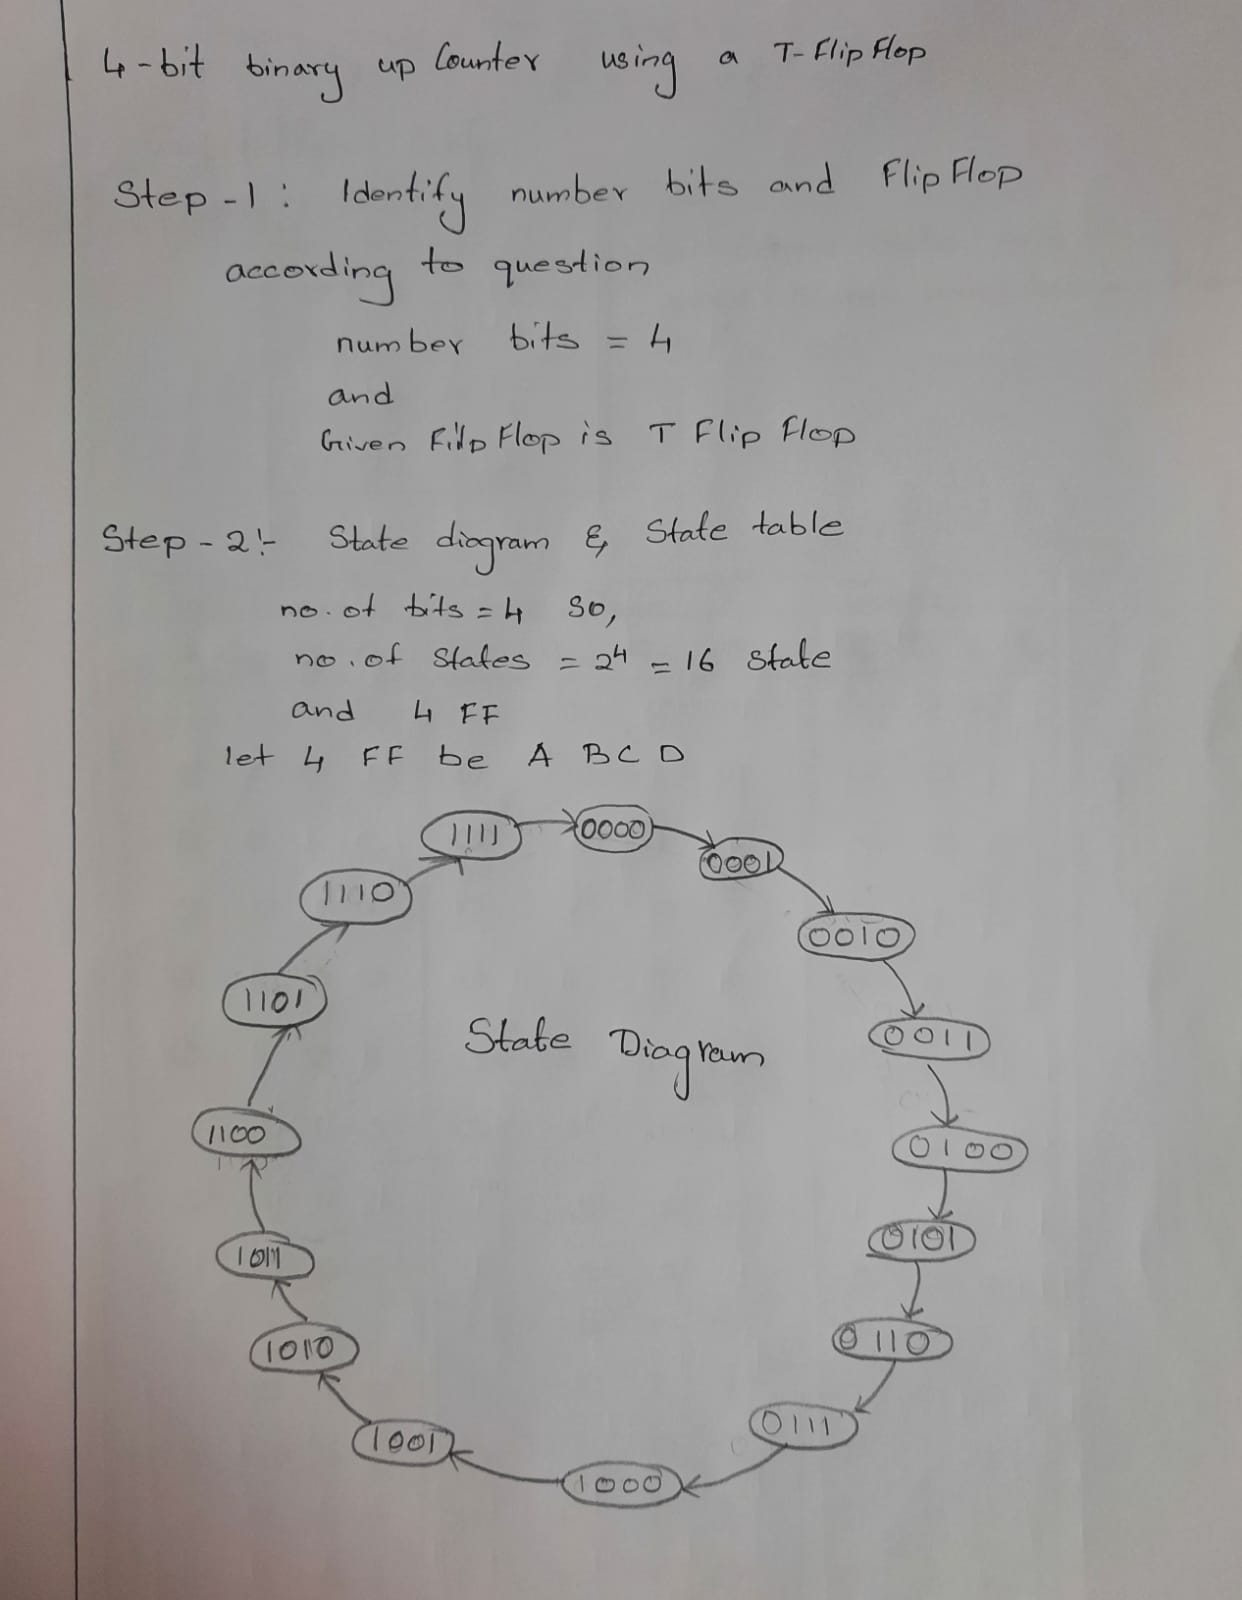 4-bit binary up Counter using a T-Flip Flop
Step-1: Identify number bits and Flip Flop
according to question
number bits = 4
and
Given Filp Flop is T Flip Flop
Step-2:- State diagram & State table
no. of bits = 4 So,
no. of States = 2⁴ = 16 State
and 4 FF
let 4 FF be A B C D
1111 0000
0001
1110
0010
1101
0011
State Diagram
1100
0100
0101
1011
0110
1010
0111
1001
1000